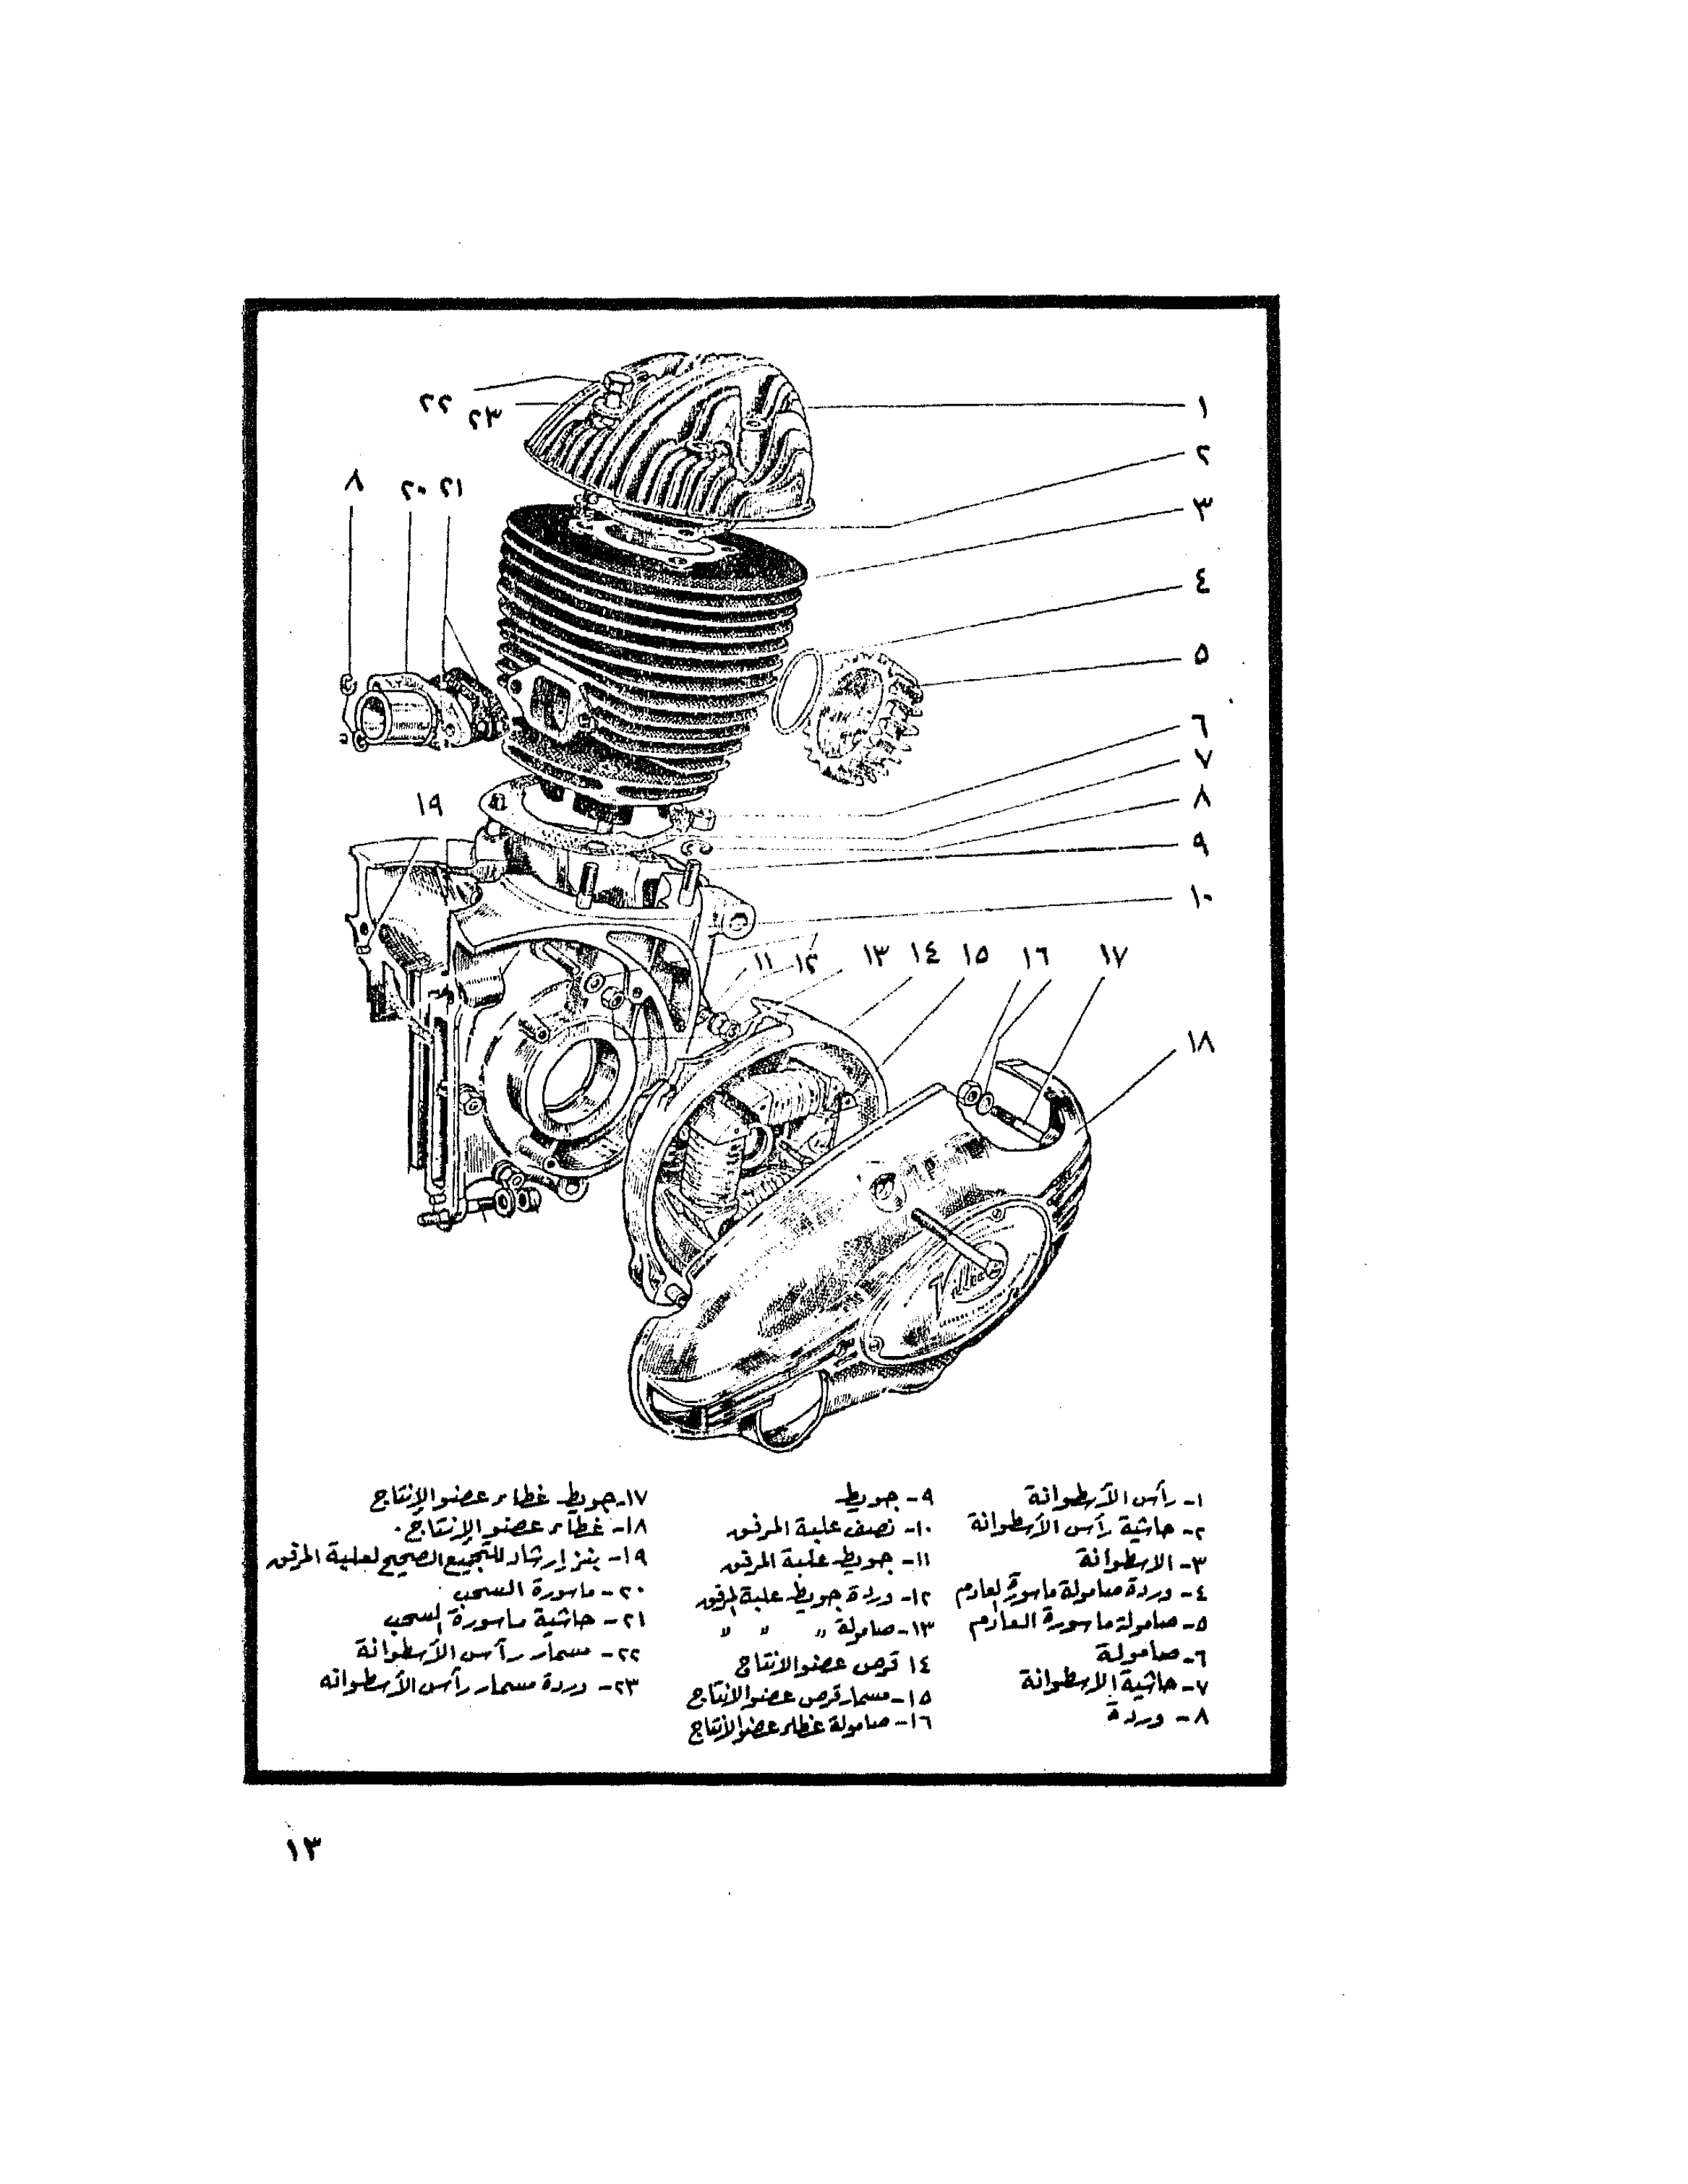 ٢٢
٢٣
١
٢
٣
٨
٢٠
٢١
٤
٥
٦
٧
٨
٩
١٩
١٠
١١
١٢
١٣
١٤
١٥
١٦
١٧
١٨
Villiers
١- رأس الأسطوانة
٢- حاشية رأس الأسطوانة
٣- الاسطوانة
٤- وردة صامولة ماسورة لعادم
٥- صامولة ماسورة العادم
٦- صامولة
٧- حاشية الاسطوانة
٨- وردة
٩- جويط
١٠- نصف علبة المرفق
١١- جويط علبة المرفق
١٢- وردة جويط علبة المرفق
١٣- صامولة " " "
١٤ قرص عضو الانتاج
١٥- مسمار قرص عضو الانتاج
١٦- صامولة غطاء عضو الأنتاج
١٧- جويط غطاء عضو الإنتاج
١٨- غطاء عضو الإنتاج.
١٩- بنز إرشاد للتجميع الصحيح لعلبة المرفق
٢٠- ماسورة السحب
٢١- حاشية ماسورة السحب
٢٢- مسمار رأس الأسطوانة
٢٣- وردة مسمار رأس الأسطوانه
١٣